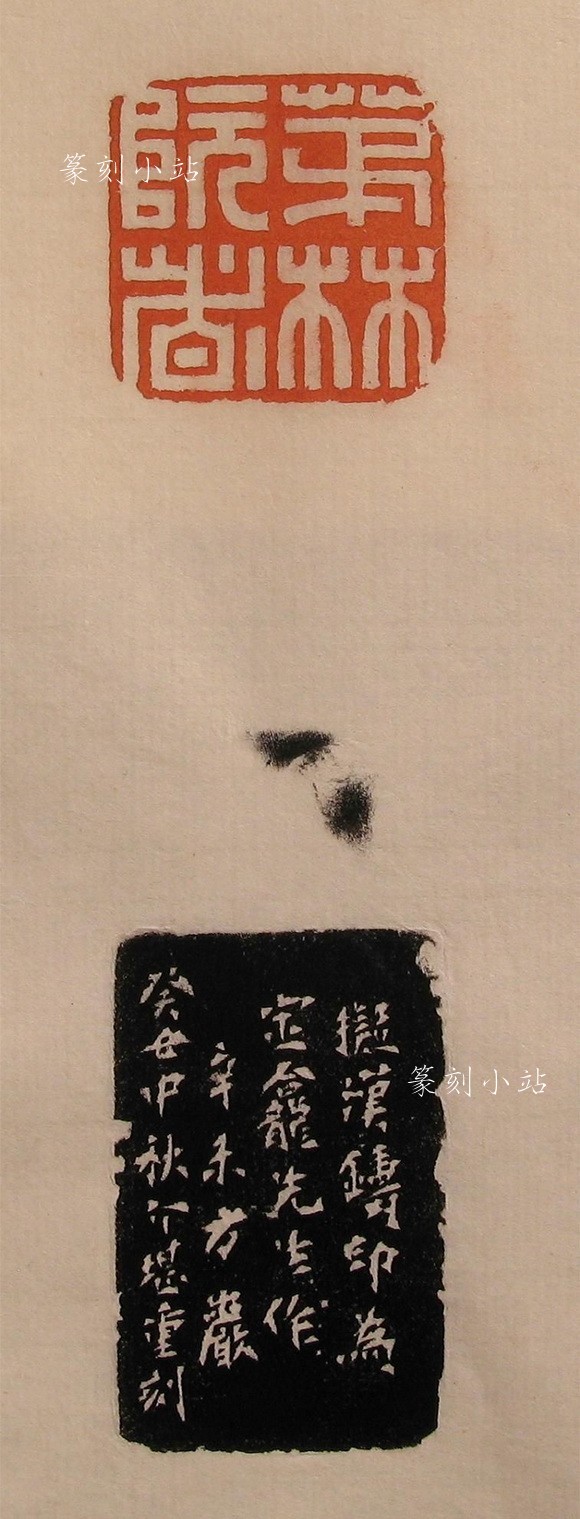 篆刻小站
林
擬漢鑄印為
定龕先生作
辛未方巖
癸丑中秋介堪重刻
篆刻小站